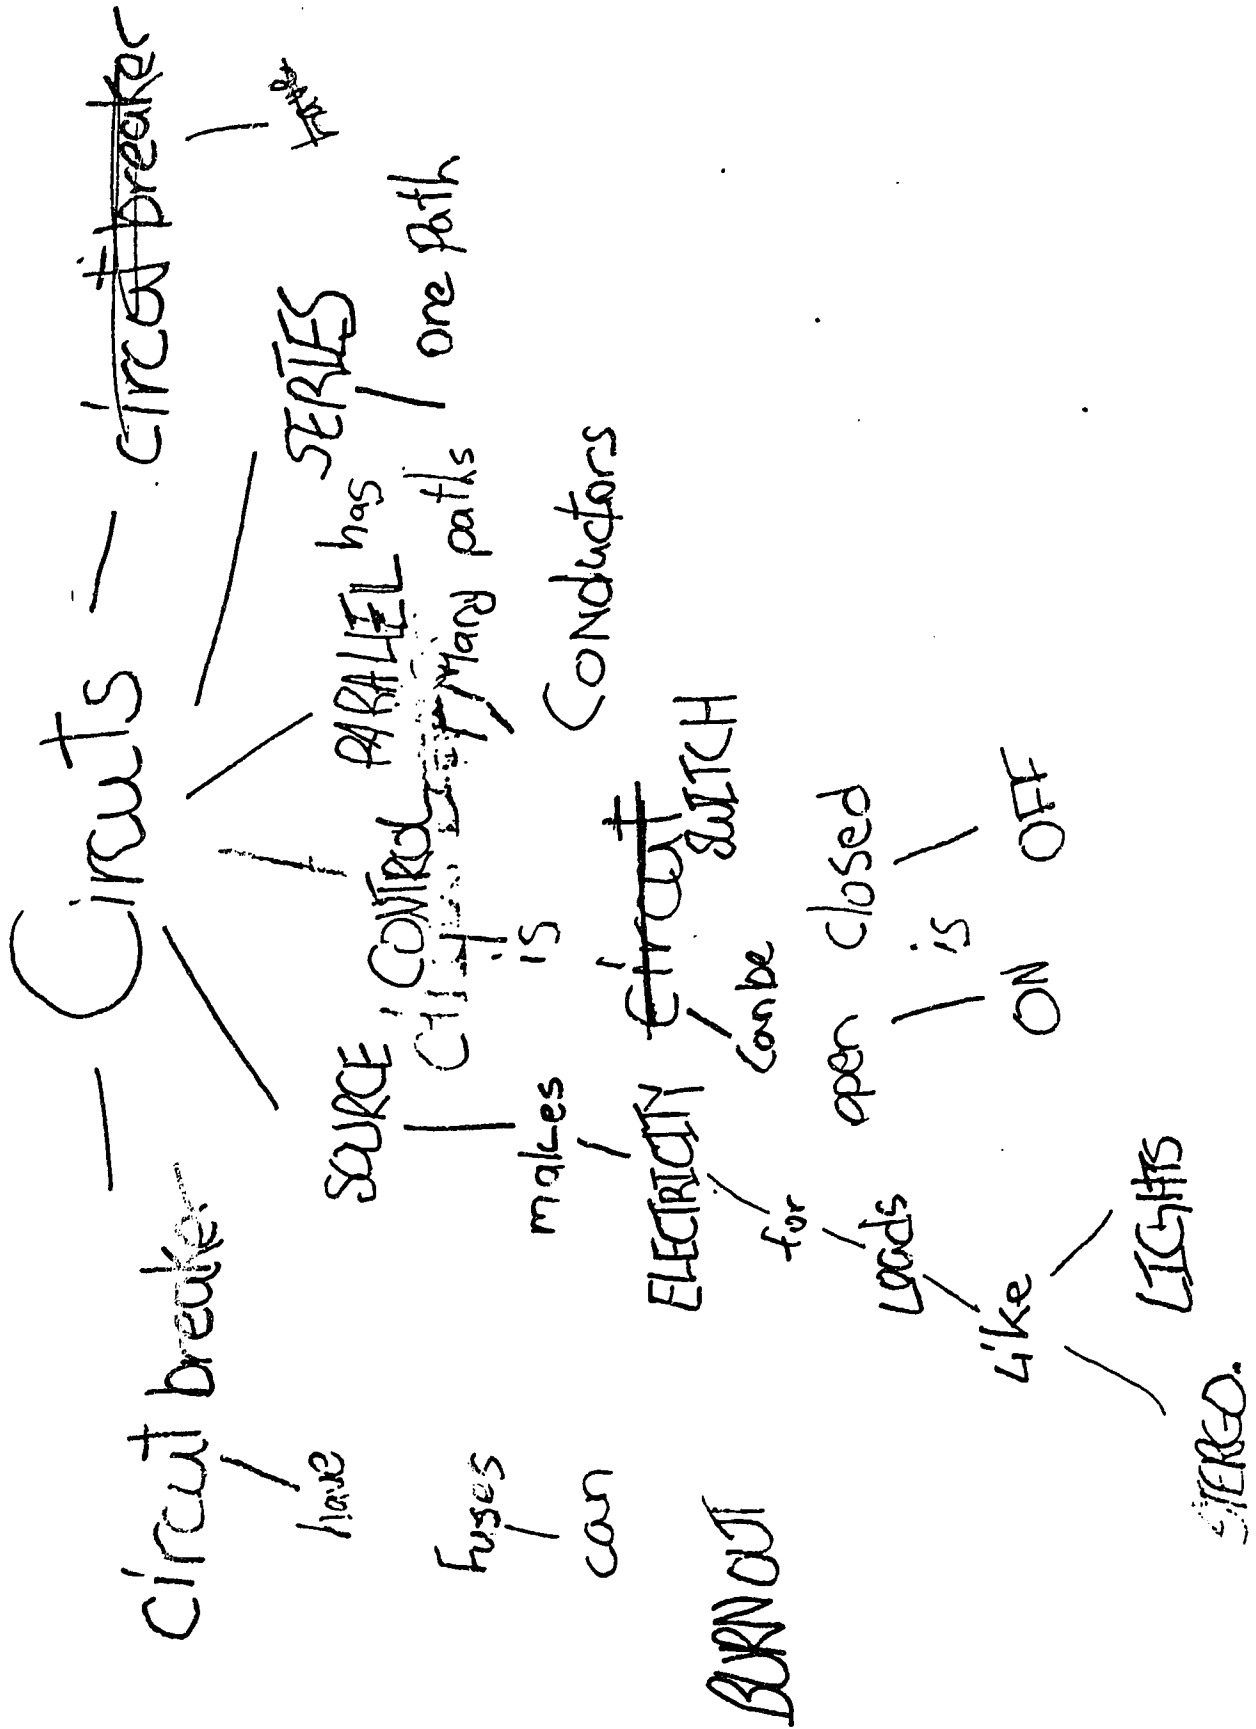 Circuts
Circut breaker
circut breaker
have
Fuses
can
BURN OUT
SOURCE
makes
ELECTRICITY
for
Loads
Like
STERGO.
LIGHTS
CONTROL
is
Circut
SWITCH
can be
open closed
is
ON OFF
PARALLEL has
Many paths
SERIES
one Path
CONductors